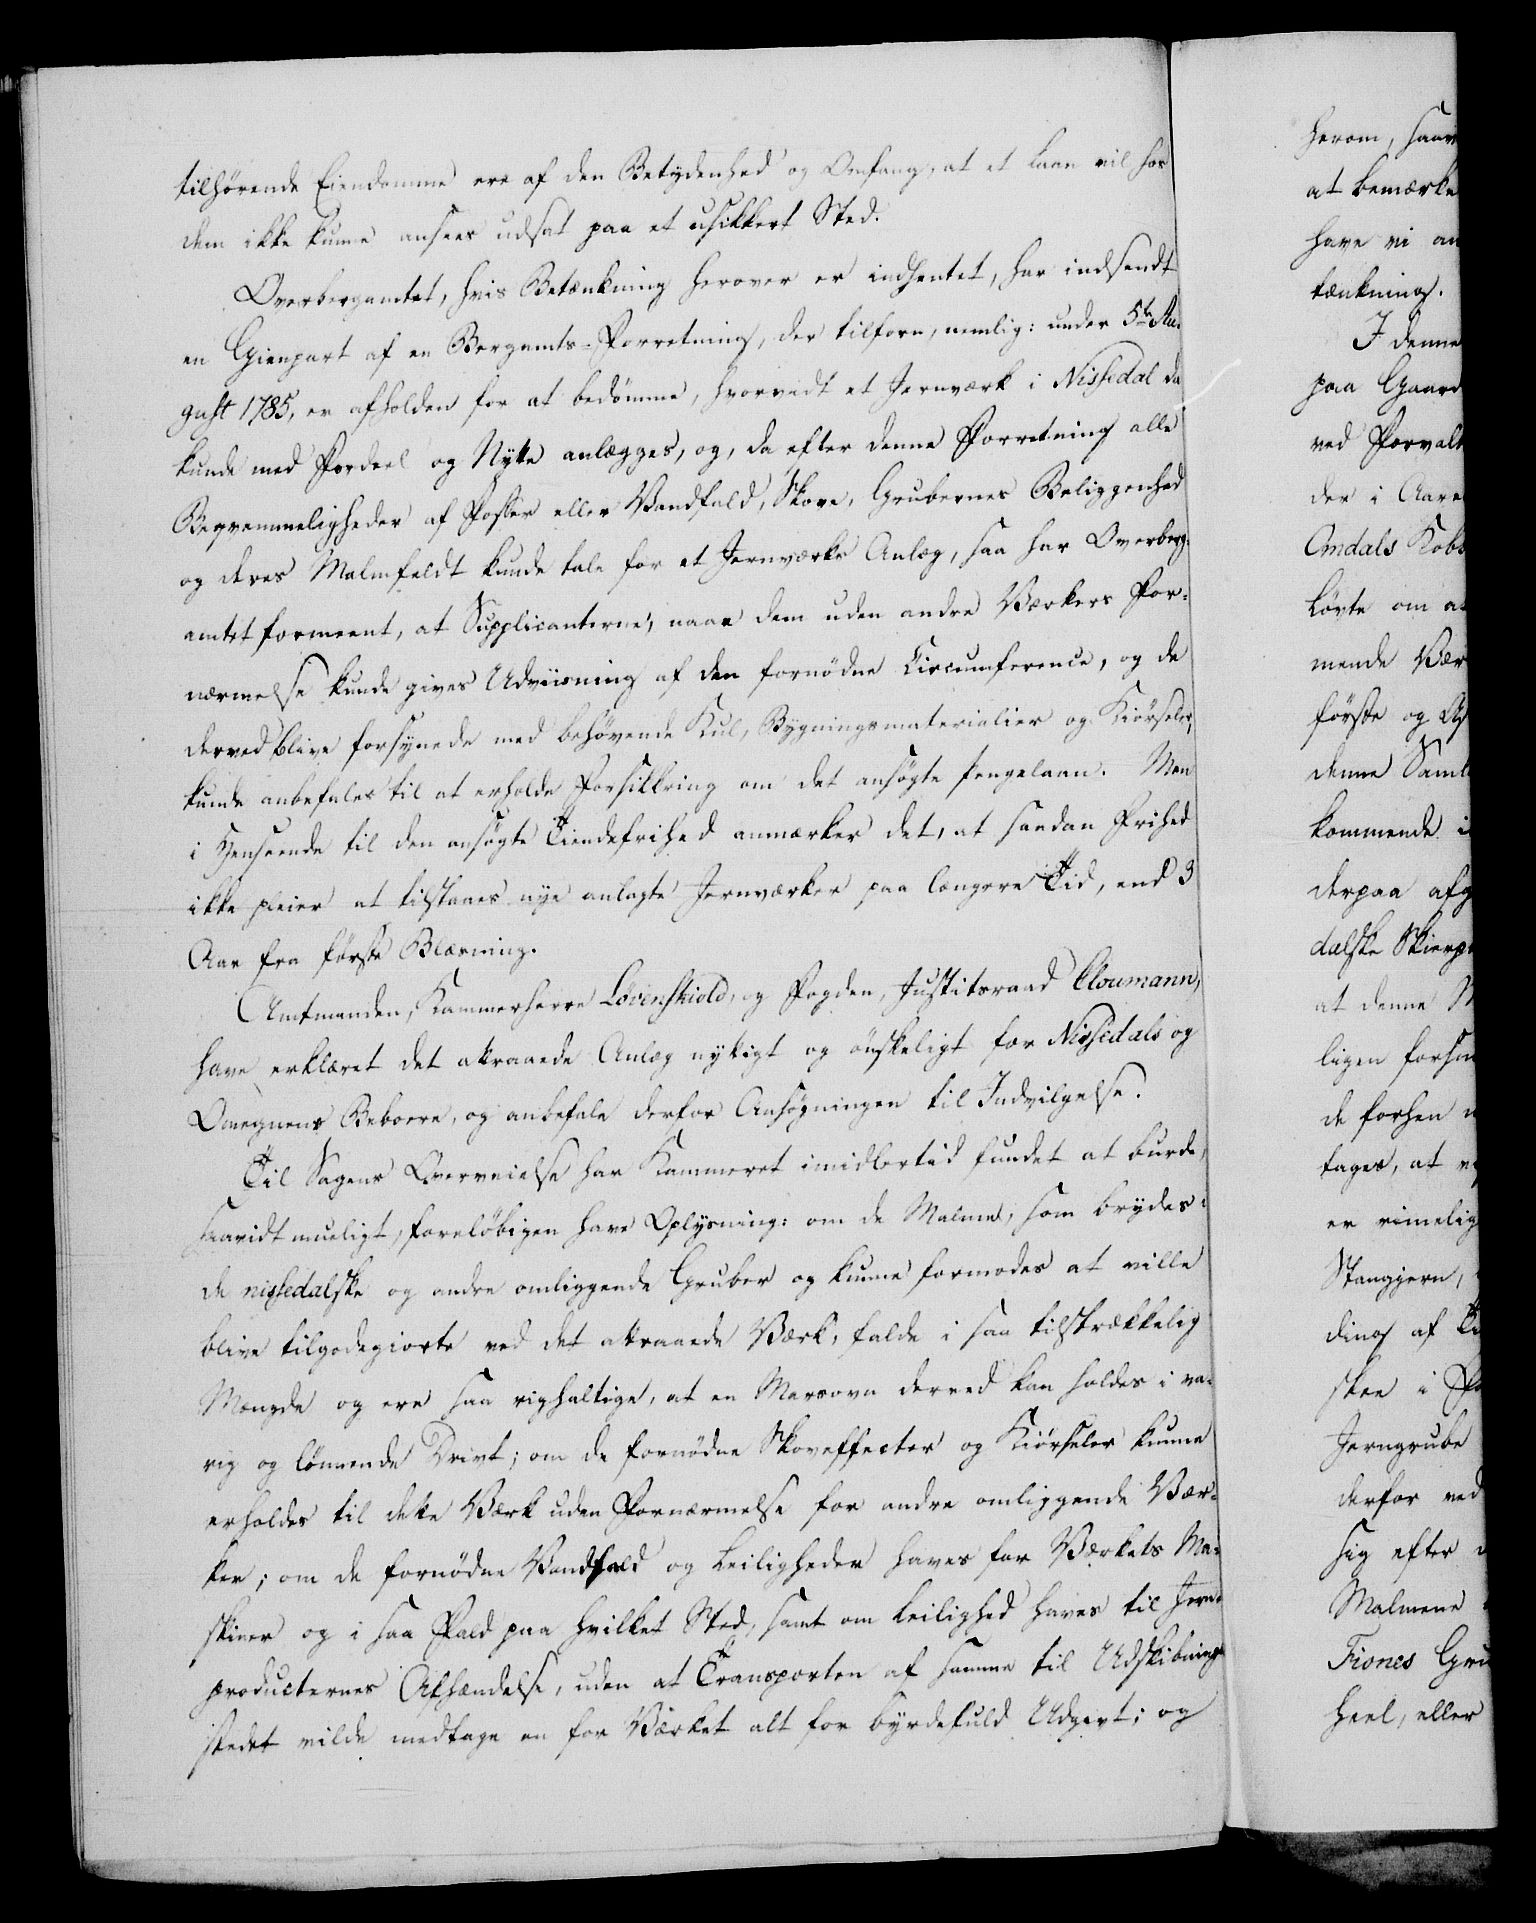 tilhörende Eiendomme ere af den Betydenhed og Omfang, at et Laan vil hos
dem ikke kunne ansees udsat paa et usikkert Sted.
Overbergamtet, hvis Betænkning herover er indhentet, har indsendt
en Gienpart af en Bergamts-Forretning, der tilforn, nemlig: under 5te Au-
gust 1785, er afholden for at bedömme, hvorvidt et Jernværk i Nissedal da
kunde med Fordeel og Nytte anlægges, og, da efter denne Forretning alle
Beqvemmeligheder af Fosser eller Vandfald, Skove, Grubernes Beliggenhed
og deres Malmfeldt kunde tale for et Jernværks Anlæg, saa har Overberg-
amtet formeent, at Supplicanterne, naar dem uden andre Værkers For-
nærmelse kunde gives Udviisning af den fornödne Circumference, og de
derved blive forsynede med behövende Kul, Bygningsmaterialier og Kiörseler,
kunde anbefales til at erholde Forsikkring om det ansögte Pengelaan. Men
i Henseende til den ansögte Tiendefrihed anmærker det, at saadan Frihed
ikke pleier at tilstaaes nye anlagte Jernværker paa længere Tid, end 3
Aar fra förste Blæsning.
Amtmanden, Kammerherre Lövenskiold, og Fogden, Justitsraad Cloumann,
have erklæret det attraaede Anlæg nyttigt og önskeligt for Nissedals og
Omegnens Beboere, og anbefale derfor Ansögningen til Indvilgelse.
Til Sagens Overveielse har Kammeret imidlertid fundet at burde,
saavidt mueligt, foreløbigen have Oplysning: om de Malme, som brydes i
de nissedalske og andre omliggende Gruber og kunne formodes at ville
blive tilgodegiorte ved det attraaede Værk, falde i saa tilstrækkelig
Mængde og ere saa righaltige, at en Masovn derved kan holdes i va-
rig og lönnende Drivt; om de fornödne Skoveffecter og Kiörseler kunne
erholdes til dette Værk uden Fornærmelse for andre omliggende Vær-
ker; om de fornödne Vandfald og Leiligheder haves for Værkets Ma-
skiner og i saa Fald paa hvilket Sted, samt om Leilighed haves til Jern-
producternes Afhændelse, uden at Transporten af samme til Udskibnings-
stedet vilde medtage en for Værket alt for byrdefuld Udgivt; og
herom, saav
at bemærke
have vi an
tænkning.
I denne
paa Gaard
ved Forvalt
der i Aare
Omdals Kobb
lövte om at
mende Vær
förste og
denne Saml
kommende i
derpaa afg
dalske Skierp
at denne M
ligen forsm
de forhen
tages, at
er rimelig
Stangjern,
ding af
skee i
Jerngrube
derfor ved
sig efter
Malmene
Fiones Gru
heel, eller